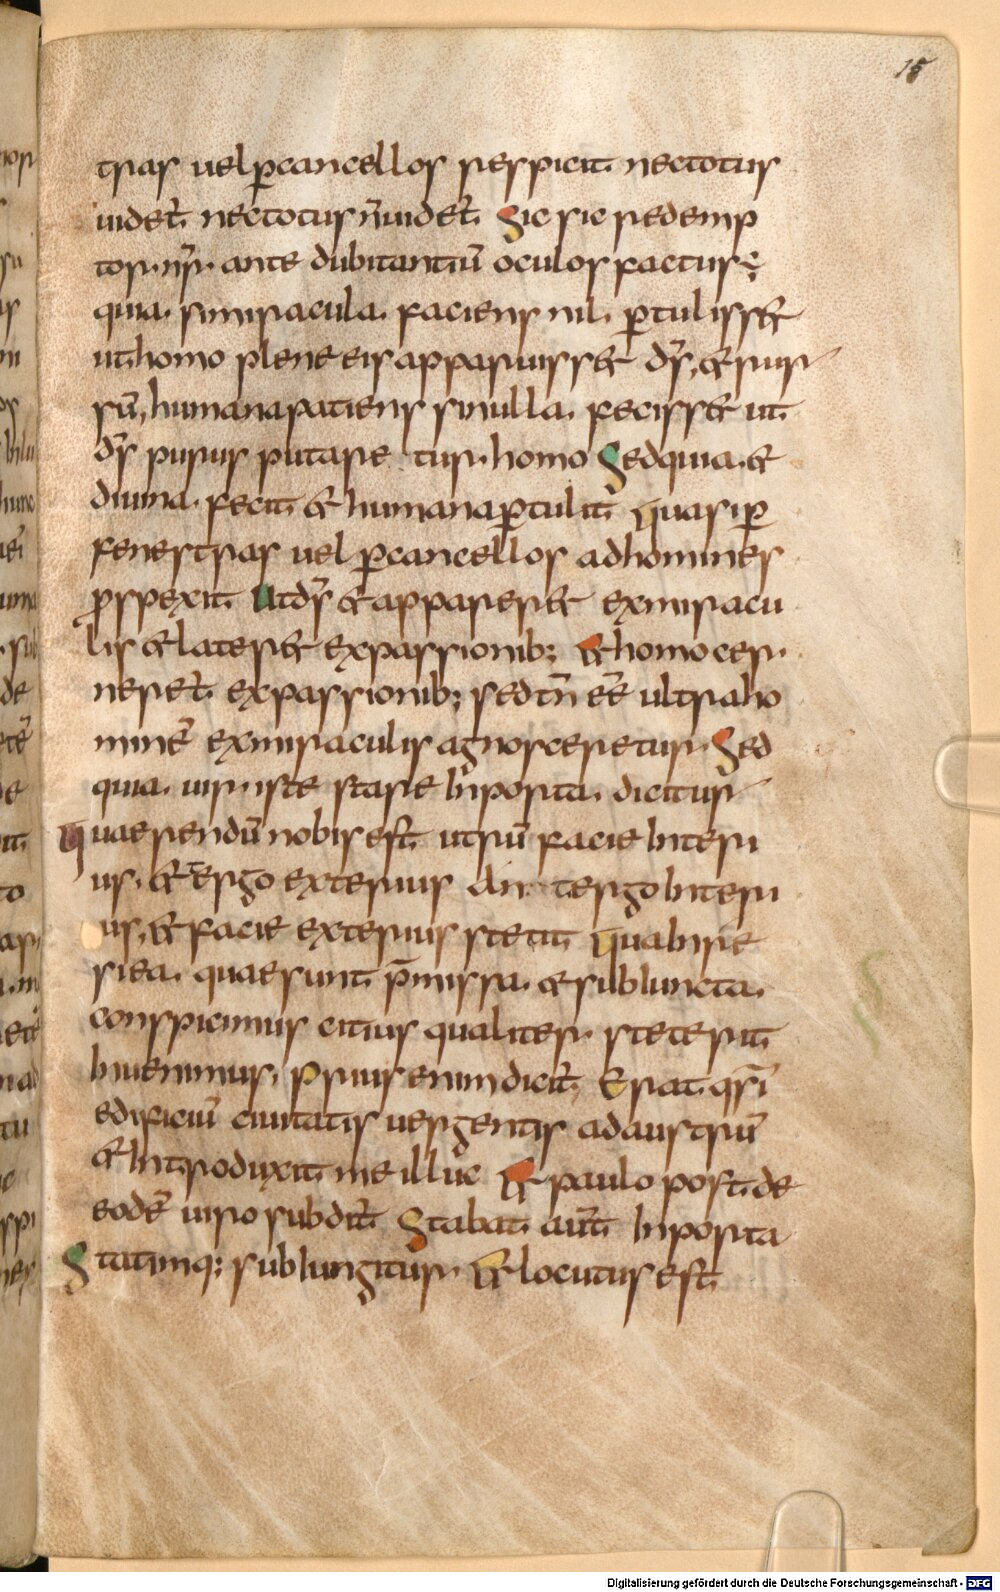 15
tras uel ꝑcancellos respicit nectotus
uidet̄ nectotus n̄uidet̄ Sic sic redemp
tor nr̄ ante dubitantiū oculos factus ę̄
quia si miracula faciens nil ꝑtulisset
ut homo plene eis apparuisset d̄s, & rur
sū, humana patiens si nulla fecisset ut
d̄s purus putare tur homo Sed quia &
diuina fecit & humana ꝑtulit Quasi ꝑ
fenestras uel ꝑcancellos ad homines
ꝓspexit Ut d̄s & apparer& ex miracu
lis & later& ex passionib; & homo cer
neret̄ ex passionib; sed tn̄ ēē ultra ho
minē ex miraculis agnosceretur Sed
quia uir iste stare In porta dicitur
Quaerendū nobis est utrū facie Interi
us & tergo exterius An tergo Interi
us, & facie exterius stetit Qua In re
si ea quae sunt p̄missa & subIuncta
conspicimus citius qualiter steterit
Inuenimus, Prius enim dicit̄ Erat qr̄i
edificiū ciuitatis uergentis ad austrū
& Introduxit me illuc & paulo post de
eodē uiro subdit̄ Stabat aut̄ In porta
Statimq; subIungitur & locutus est
Digitalisierung gefördert durch die Deutsche Forschungsgemeinschaft - DFG